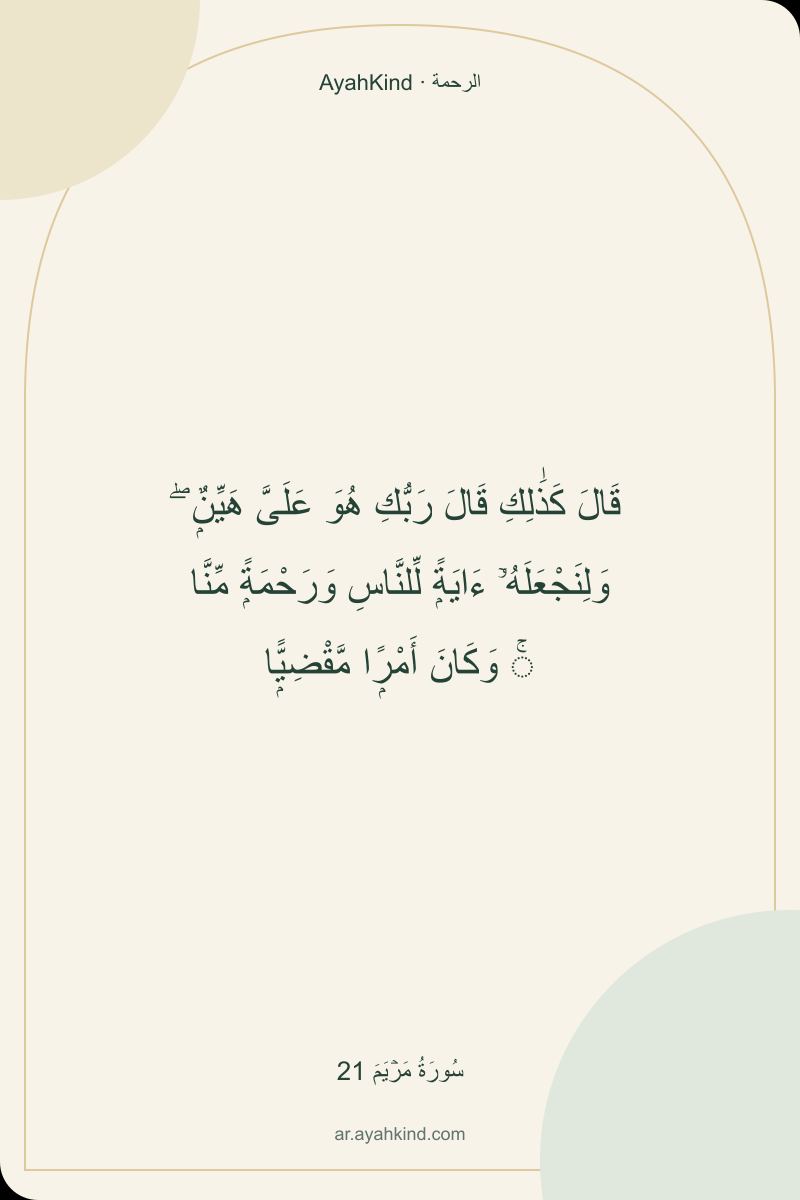 AyahKind · الرحمة
قَالَ كَذَٰلِكِ قَالَ رَبُّكِ هُوَ عَلَىَّ هَيِّنٌۭ ۖ
وَلِنَجْعَلَهُۥٓ ءَايَةًۭ لِّلنَّاسِ وَرَحْمَةًۭ مِّنَّا
ۚ وَكَانَ أَمْرًۭا مَّقْضِيًّۭا
سُورَةُ مَرۡيَمَ 21
ar.ayahkind.com